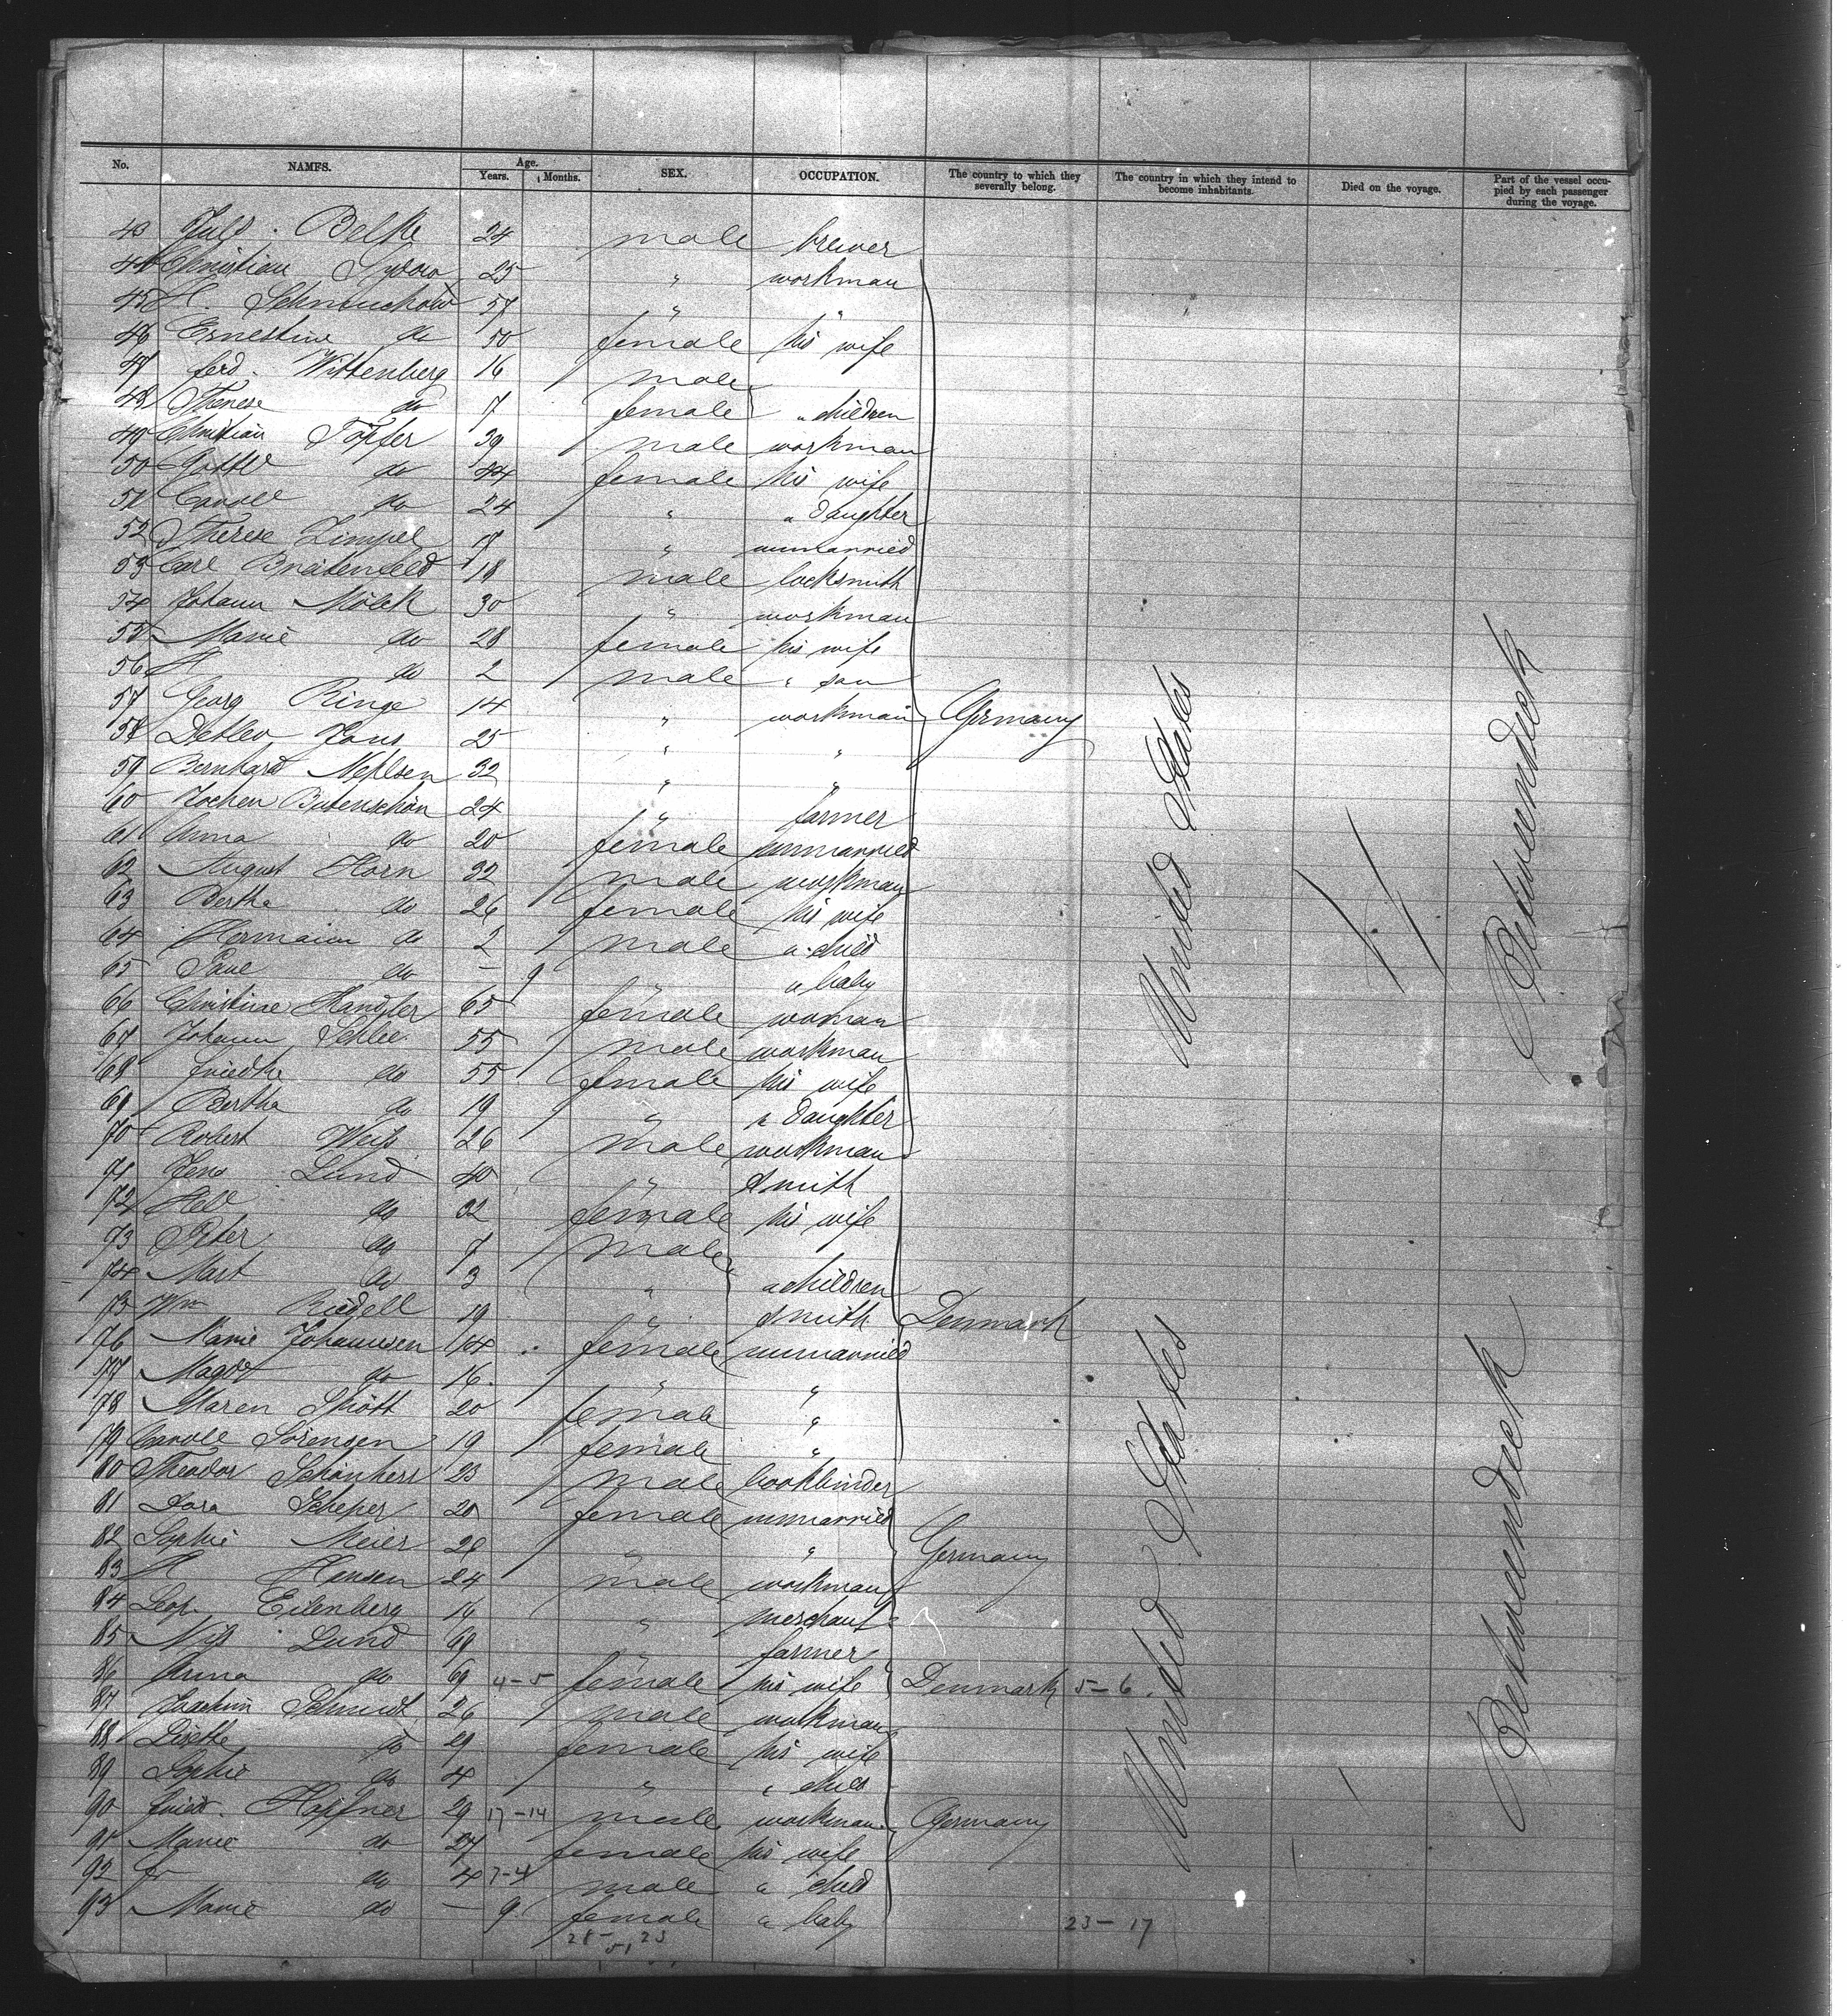 No. NAMES. Age. Years. Months. SEX. OCCUPATION. The country to which they severally belong. The country in which they intend to become inhabitants. Died on the voyage. Part of the vessel occupied by each passenger during the voyage.
43 Belke 24 male brewer
44 Christian Sydow 25 " workman
45 H. 57 " "
46 Ernestine do 50 female his wife
47 Ferd. Wittenberg 16 male
48 Therese do 7 female " children
49 Christian Töpfer 39 male workman
50 do 44 female his wife
51 Caroll do 24 " " daughter
52 Therese Zimpel 17 " unmarried
53 Carl Breitenfeld 18 male locksmith
54 Johann Mölck 30 " workman
55 Marie do 28 female his wife
56 H do 2 male " son
57 Georg Ringe 14 " workman Germany
58 Detlev Hans 25 " "
59 Bernhard Nehlsen 32 " "
60 Jochen Butenschön 24 " farmer
61 Anna do 20 female unmarried
62 August Horn 32 male workman
63 Bertha do 26 female his wife
64 Hermann do 2 male a child
65 Paul do - 9 " a baby
66 Christine 65 female woman
67 Johann Schlee 55 male workman
68 Friedke do 55 female his wife
69 Bertha do 19 " " daughter
70 Robert Weiß 26 male workman
71 Jens Lund 40 " smith
72 do 32 female his wife
73 Peter do 7 male
74 Mart do 3 " " children
75 Wm Riedell 19 " smith Denmark
76 Marie Johannsen 14 female unmarried
77 Magd do 16 " "
78 Maren Skött 20 female "
79 Caroll Sörensen 19 female "
80 Theodor Schönherr 23 male bookbinder
81 Dora Scheper 20 female unmarried
82 Sophie Meier 28 " " Germany
83 H Hansen 24 male workman
84 Leop. Eilenberg 16 " merchant
85 Niß Lund 69 " farmer
86 Anna do 69 4-5 female his wife Denmark 5-6.
87 Joachim Schmidt 26 male workman
88 Lisette do 29 female his wife
89 Sophie do 4 " " child
90 Friedr. Höpfner 29 17-14 male workman Germany
91 Marie do 27 female his wife
92 do 4 7-4 male a child
93 Marie do - 9 female a baby
23-17
28- 23
51
United States
United States
Betweendeck
Betweendeck